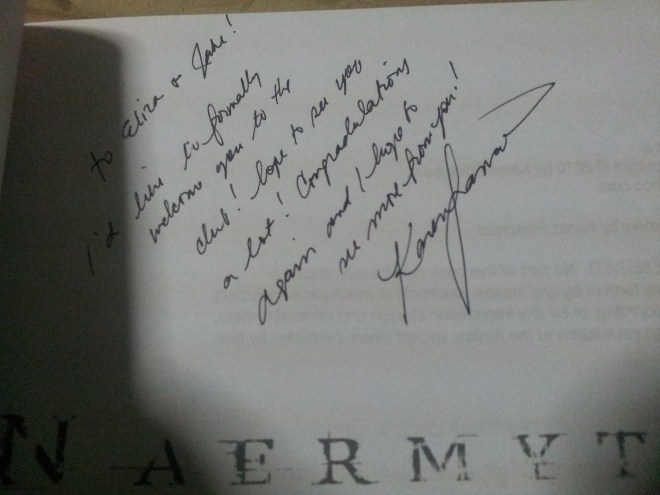 to Eliza & Jake!
I'd like to formally
welcome you to the
club! hope to see you
a lot! Congradulations
again and I hope to
see more from you!
Karen
N AERMYT